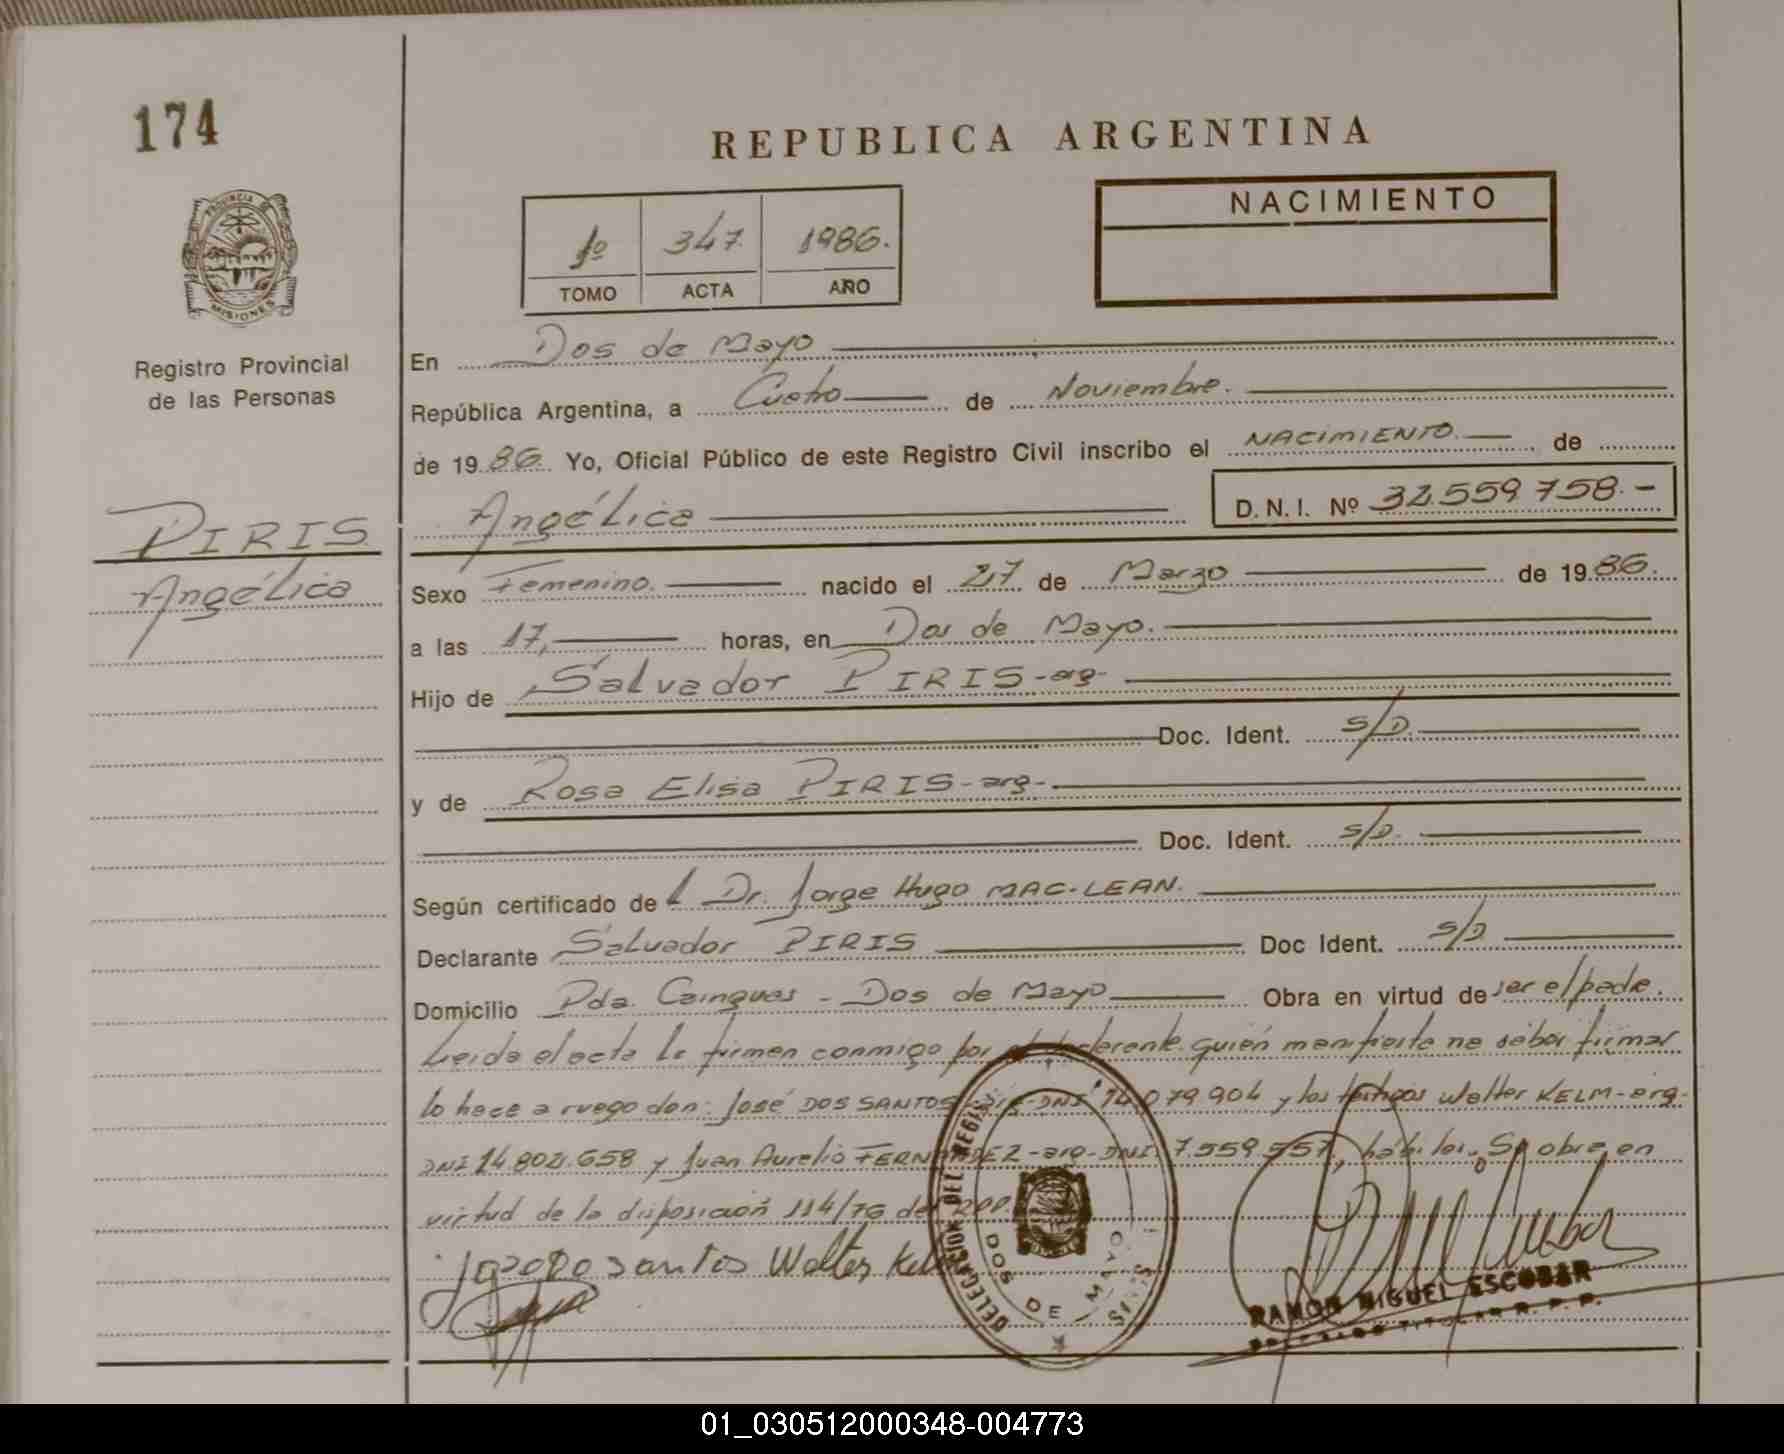 174
REPUBLICA ARGENTINA
NACIMIENTO
1º 347. 1986.
TOMO ACTA AÑO
PROVINCIA DE MISIONES
Registro Provincial
de las Personas
PIRIS
Angélica
En Dos de Mayo
República Argentina, a Cuatro de Noviembre.
de 19 86. Yo, Oficial Público de este Registro Civil inscribo el NACIMIENTO. de
Angélica D.N.I. Nº 32.559.758.-
Sexo Femenino. nacido el 27 de Marzo de 19 86.
a las 17, horas, en Dos de Mayo.
Hijo de Salvador PIRIS-arg-
Doc. Ident. S/D.
y de Rosa Elisa PIRIS-arg-
Doc. Ident. S/D.
Según certificado del Dr. Jorge Hugo MAC-LEAN.
Declarante Salvador PIRIS Doc Ident. S/D
Domicilio Pda. Cainguas - Dos de Mayo Obra en virtud de ser el padre.
Leida el acta la firman conmigo por el declarante quién manifiesta no saber firmar
lo hace a ruego don: José DOS SANTOS DNI. 14.079.904 y los testigos Walter KELM-arg-
DNI 14.802.658 y Juan Aurelio FERNANDEZ-arg-DNI. 7.559.557, hábiles. Se obra en
virtud de la disposición 114/76 del RPP.
Jose Do santos Walter Kelm
DELEGACION DEL REGIS
DOS DE MAYO
RAMON MIGUEL ESCOBAR
TITULAR R. P. P.
01_030512000348-004773